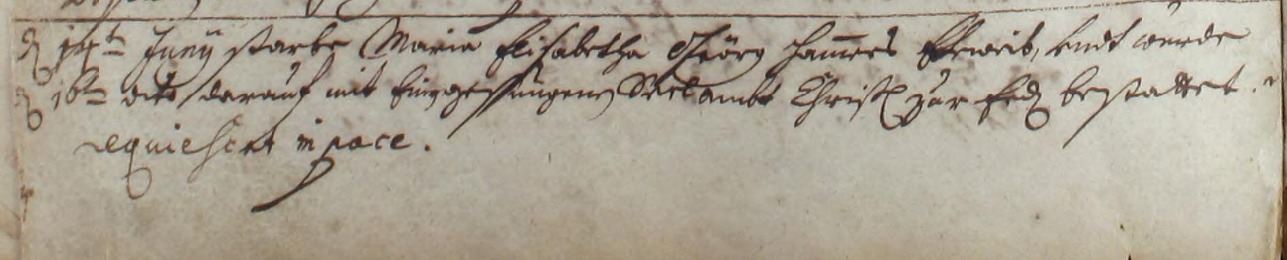 14t Junij starbe Maria Elisabetha Geörg Ham̄ers Eheweib, undt wurde
16tn dito darauf mit Eingesungenen Seelambt Christl. zur Erd bestattet.
requiescat in pace.